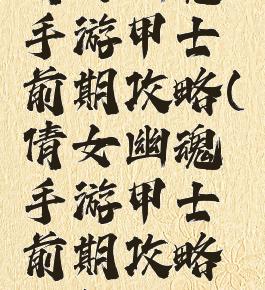 手游甲士
前期攻略(
倩女幽魂
手游甲士
前期攻略